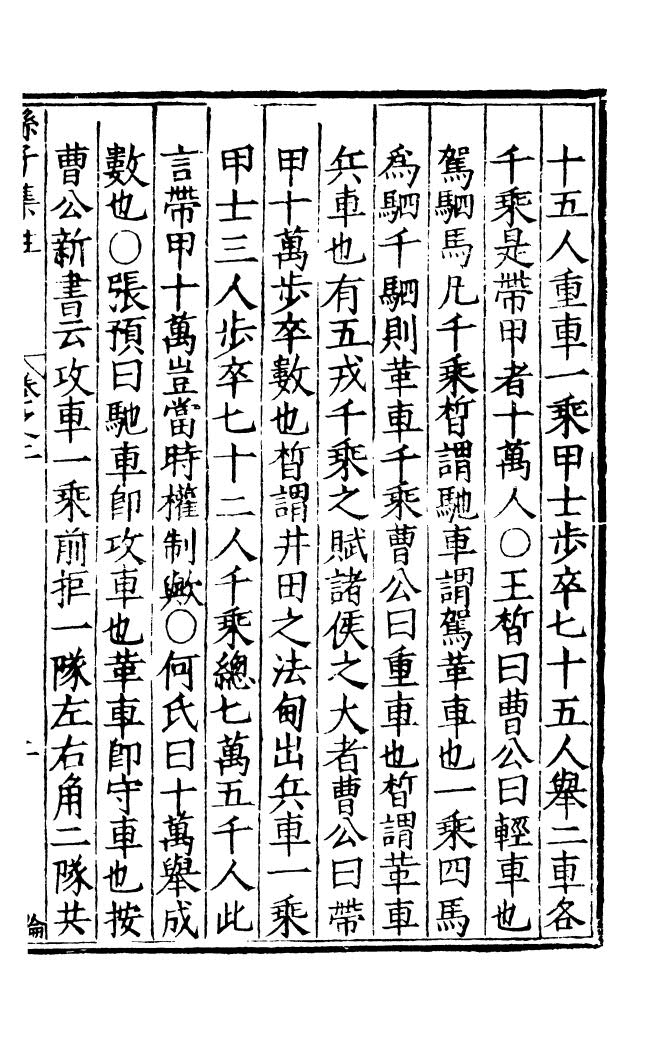 十五人重車一乘甲士步卒七十五人舉二車各
千乘是帶甲者十萬人〇王晳曰曹公曰輕車也
駕駟馬凡千乘晳謂馳車謂駕革車也一乘四馬
爲駟千駟則革車千乘曹公曰重車也晳謂革車
兵車也有五戎千乘之賦諸侯之大者曹公曰帶
甲十萬步卒數也晳謂井田之法甸出兵車一乘
甲士三人步卒七十二人千乘總七萬五千人此
言帶甲十萬豈當時權制歟〇何氏曰十萬舉成
數也〇張預曰馳車卽攻車也革車卽守車也按
曹公新書云攻車一乘前拒一隊左右角二隊共
孫子集註